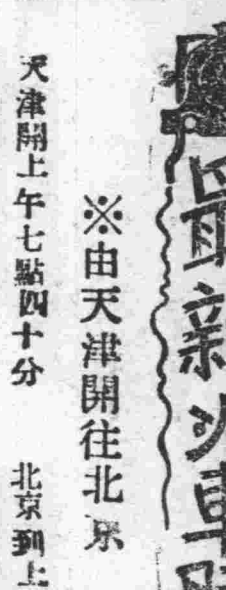 最新火車時
※由天津開往北京
天津開上午七點四十分　北京到上